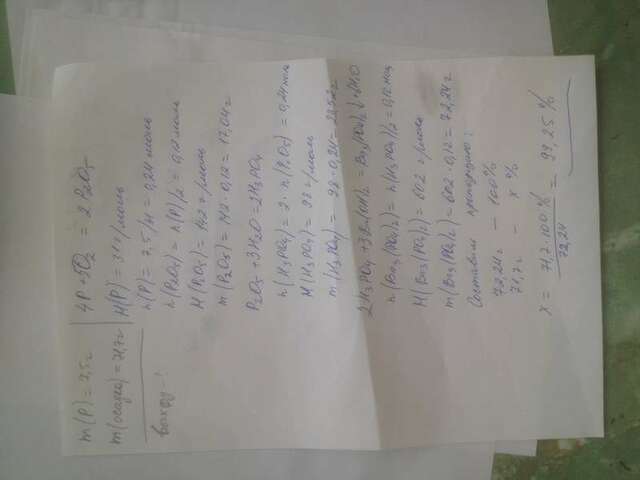 m(P) = 7,5 г
m(осадка) = 71,7 г
4P + 5O₂ = 2P₂O₅
M(P) = 31 г/моль
n(P) = 7,5/31 = 0,24 моль
n(P₂O₅) = n(P)/2 = 0,12 моль
M(P₂O₅) = 142 г/моль
m(P₂O₅) = 142 · 0,12 = 17,04 г
P₂O₅ + 3H₂O = 2H₃PO₄
n(H₃PO₄) = 2 · n(P₂O₅) = 0,24 моль
M(H₃PO₄) = 98 г/моль
m(H₃PO₄) = 98 · 0,24 = 23,52 г
2H₃PO₄ + 3Ba(OH)₂ = Ba₃(PO₄)₂↓ + 6H₂O
n(Ba₃(PO₄)₂) = n(H₃PO₄)/2 = 0,12 моль
M(Ba₃(PO₄)₂) = 602 г/моль
m(Ba₃(PO₄)₂) = 602 · 0,12 = 72,24 г
Составим пропорцию:
72,24 г — 100%
71,7 г — x %
x = 71,7 · 100% / 72,24 = 99,25 %